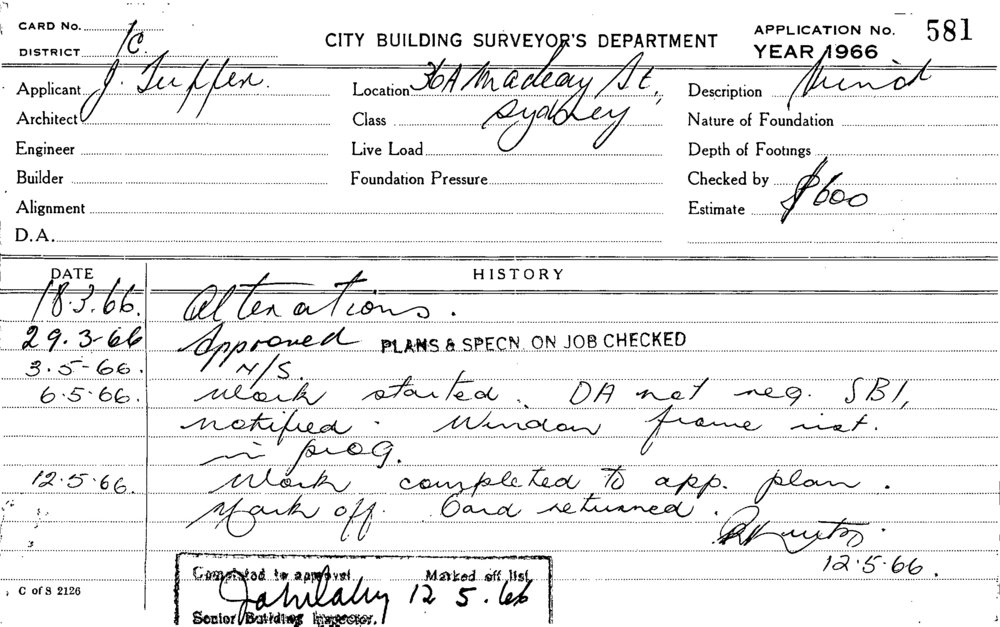 CARD No.
DISTRICT 1C.
CITY BUILDING SURVEYOR'S DEPARTMENT
APPLICATION No. 581
YEAR 1966
Applicant J. Tuffen.
Location 36A Macleay St,
Sydney
Description
Architect
Class
Nature of Foundation
Engineer
Live Load
Depth of Footings
Builder
Foundation Pressure
Checked by
Alignment
Estimate $600
D.A.
DATE HISTORY
18.3.66. Alterations.
29.3-66 Approved PLANS & SPECN. ON JOB CHECKED
3.5-66. N/S.
6.5.66. Work started. DA not req. SBI,
notified. Window frame inst.
in prog.
12.5.66. Work completed to app. plan.
Mark off. Card returned.
12.5.66.
Completed to approval Marked off list
12 5.66
Senior Building Inspector.
C of S 2126